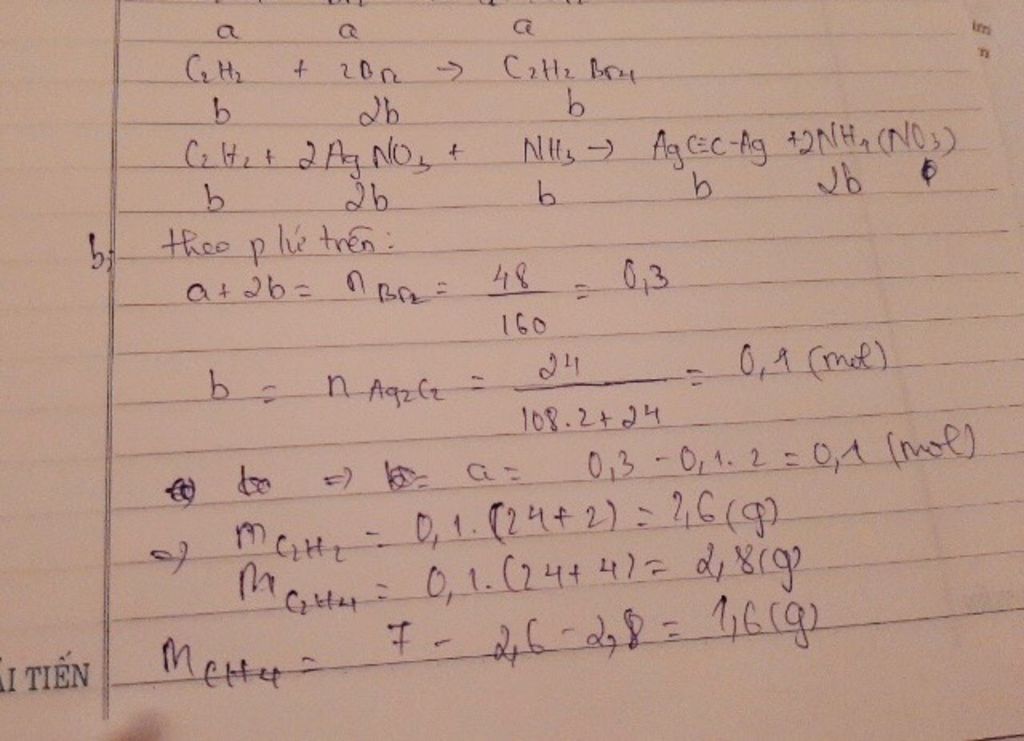 a a a
C2H2 + 2Br2 → C2H2Br4
b 2b b
C2H2 + 2AgNO3 + NH3 → AgC≡C-Ag + 2NH4(NO3)
b 2b b b 2b
b, theo p lứ trên:
a + 2b = nBr2 = 48/160 = 0,3
b = nAg2C2 = 24/(108.2+24) = 0,1 (mol)
⇒ a = 0,3 - 0,1.2 = 0,1 (mol)
⇒ mC2H2 = 0,1.(24+2) = 2,6(g)
mC2H4 = 0,1.(24+4) = 2,8(g)
mCH4 = 7 - 2,6 - 2,8 = 1,6(g)
ẢI TIẾN